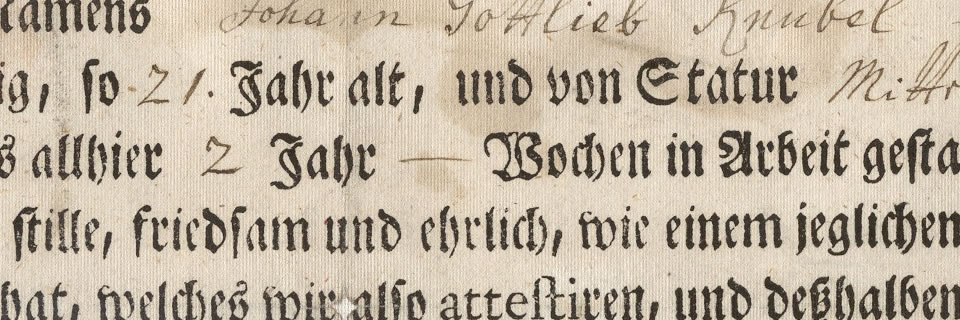 Namens Johann Gottlieb Knubel
ig, ſo 21. Jahr alt, und von Statur Mittr
s allhier 2 Jahr — Wochen in Arbeit geſta
ſtille, friedſam und ehrlich, wie einem jeglichen
hat, welches wir alſo atteſtiren, und deßhalben